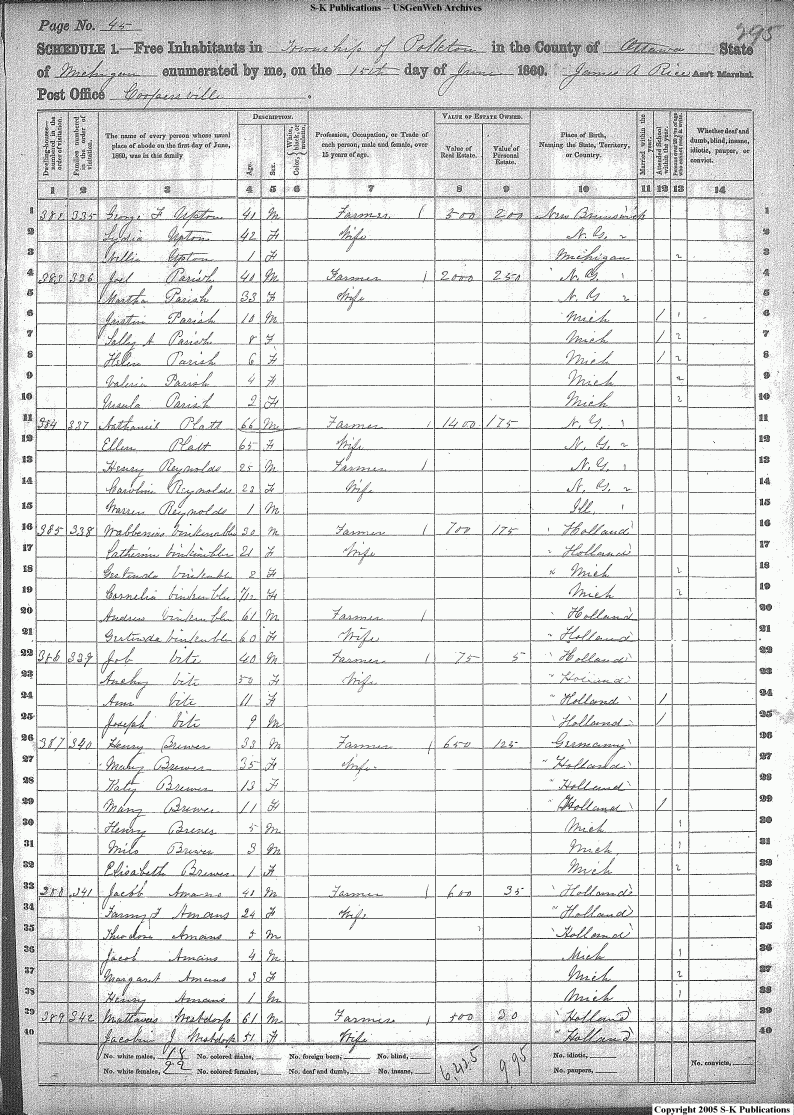 S-K Publications -- USGenWeb Archives
Page No. 45
295
SCHEDULE 1.—Free Inhabitants in Township of Polkton in the County of Ottawa State
of Michigan enumerated by me, on the 15th day of June 1860. James A Rice Ass't Marshal
Post Office Coopersville.
Dwelling-houses numbered in the order of visitation.
Families numbered in the order of visitation.
The name of every person whose usual place of abode on the first day of June, 1860, was in this family
DESCRIPTION.
Age.
Sex.
Color, White, black, or mulatto.
Profession, Occupation, or Trade of each person, male and female, over 15 years of age.
VALUE OF ESTATE OWNED.
Value of Real Estate.
Value of Personal Estate.
Place of Birth, Naming the State, Territory, or Country.
Married within the year.
Attended School within the year.
Whether deaf and dumb, blind, insane, idiotic, pauper, or convict.
1 2 3 4 5 6 7 8 9 10 11 12 13 14
1 335 George F Upton 41 M Farmer 500 200 New Brunswick 1
2 Lydia Upton 42 F Wife N.Y. 2
3 Upton 1 F Michigan 3
4 383 336 Joel Parish 40 M Farmer 2000 250 N.Y. 4
5 Martha Parish 33 F Wife N.Y. 5
6 Parish 10 M Mich 1 6
7 Sally A Parish 8 F Mich 1 7
8 Helen Parish 6 F Mich 1 8
9 Valeria Parish 4 F Mich 9
10 Ursula Parish 2 F Mich 10
11 384 337 Nathaniel Platt 66 M Farmer 1400 175 N.Y. 11
12 Ellen Platt 65 F Wife N.Y. 12
13 Henry Reynolds 25 M Farmer N.Y. 13
14 Caroline Reynolds 23 F Wife N.Y. 14
15 Warren Reynolds 1 M Ill. 15
16 385 338 30 M Farmer 700 175 Holland 16
17 21 F Wife Holland 17
18 2 F Mich 18
19 Cornelia F Mich 19
20 Andrew 61 M Farmer Holland 20
21 60 F Wife Holland 21
22 386 339 Job Vite 40 M Farmer 75 5 Holland 22
23 Vite 50 F Wife Holland 23
24 Ann Vite 11 F Holland 1 24
25 Joseph Vite 9 M Holland 1 25
26 387 340 Henry Brewer 33 M Farmer 650 125 Germany 26
27 Mary Brewer 35 F Wife Holland 27
28 Katy Brewer 13 F Holland 28
29 Mary Brewer 11 F Holland 1 29
30 Henry Brewer 5 M Mich 30
31 Brewer 3 M Mich 31
32 Elisabeth Brewer 1 F Mich 32
33 388 341 Jacob Amans 41 M Farmer 600 35 Holland 33
34 Amans 24 F Wife Holland 34
35 Theodore Amans M Holland 35
36 Jacob Amans 4 M Mich 36
37 Margaret Amans 3 F Mich 37
38 Henry Amans 1 M Mich 38
39 389 342 61 M Farmer 500 30 Holland 39
40 J 51 F Wife Holland 40
No. white males, 18 No. colored males, No. foreign born, No. blind, 6,425 995 No. idiotic, No. convicts,
No. white females, 22 No. colored females, No. deaf and dumb, No. insane, No. paupers,
Copyright 2005 S-K Publications